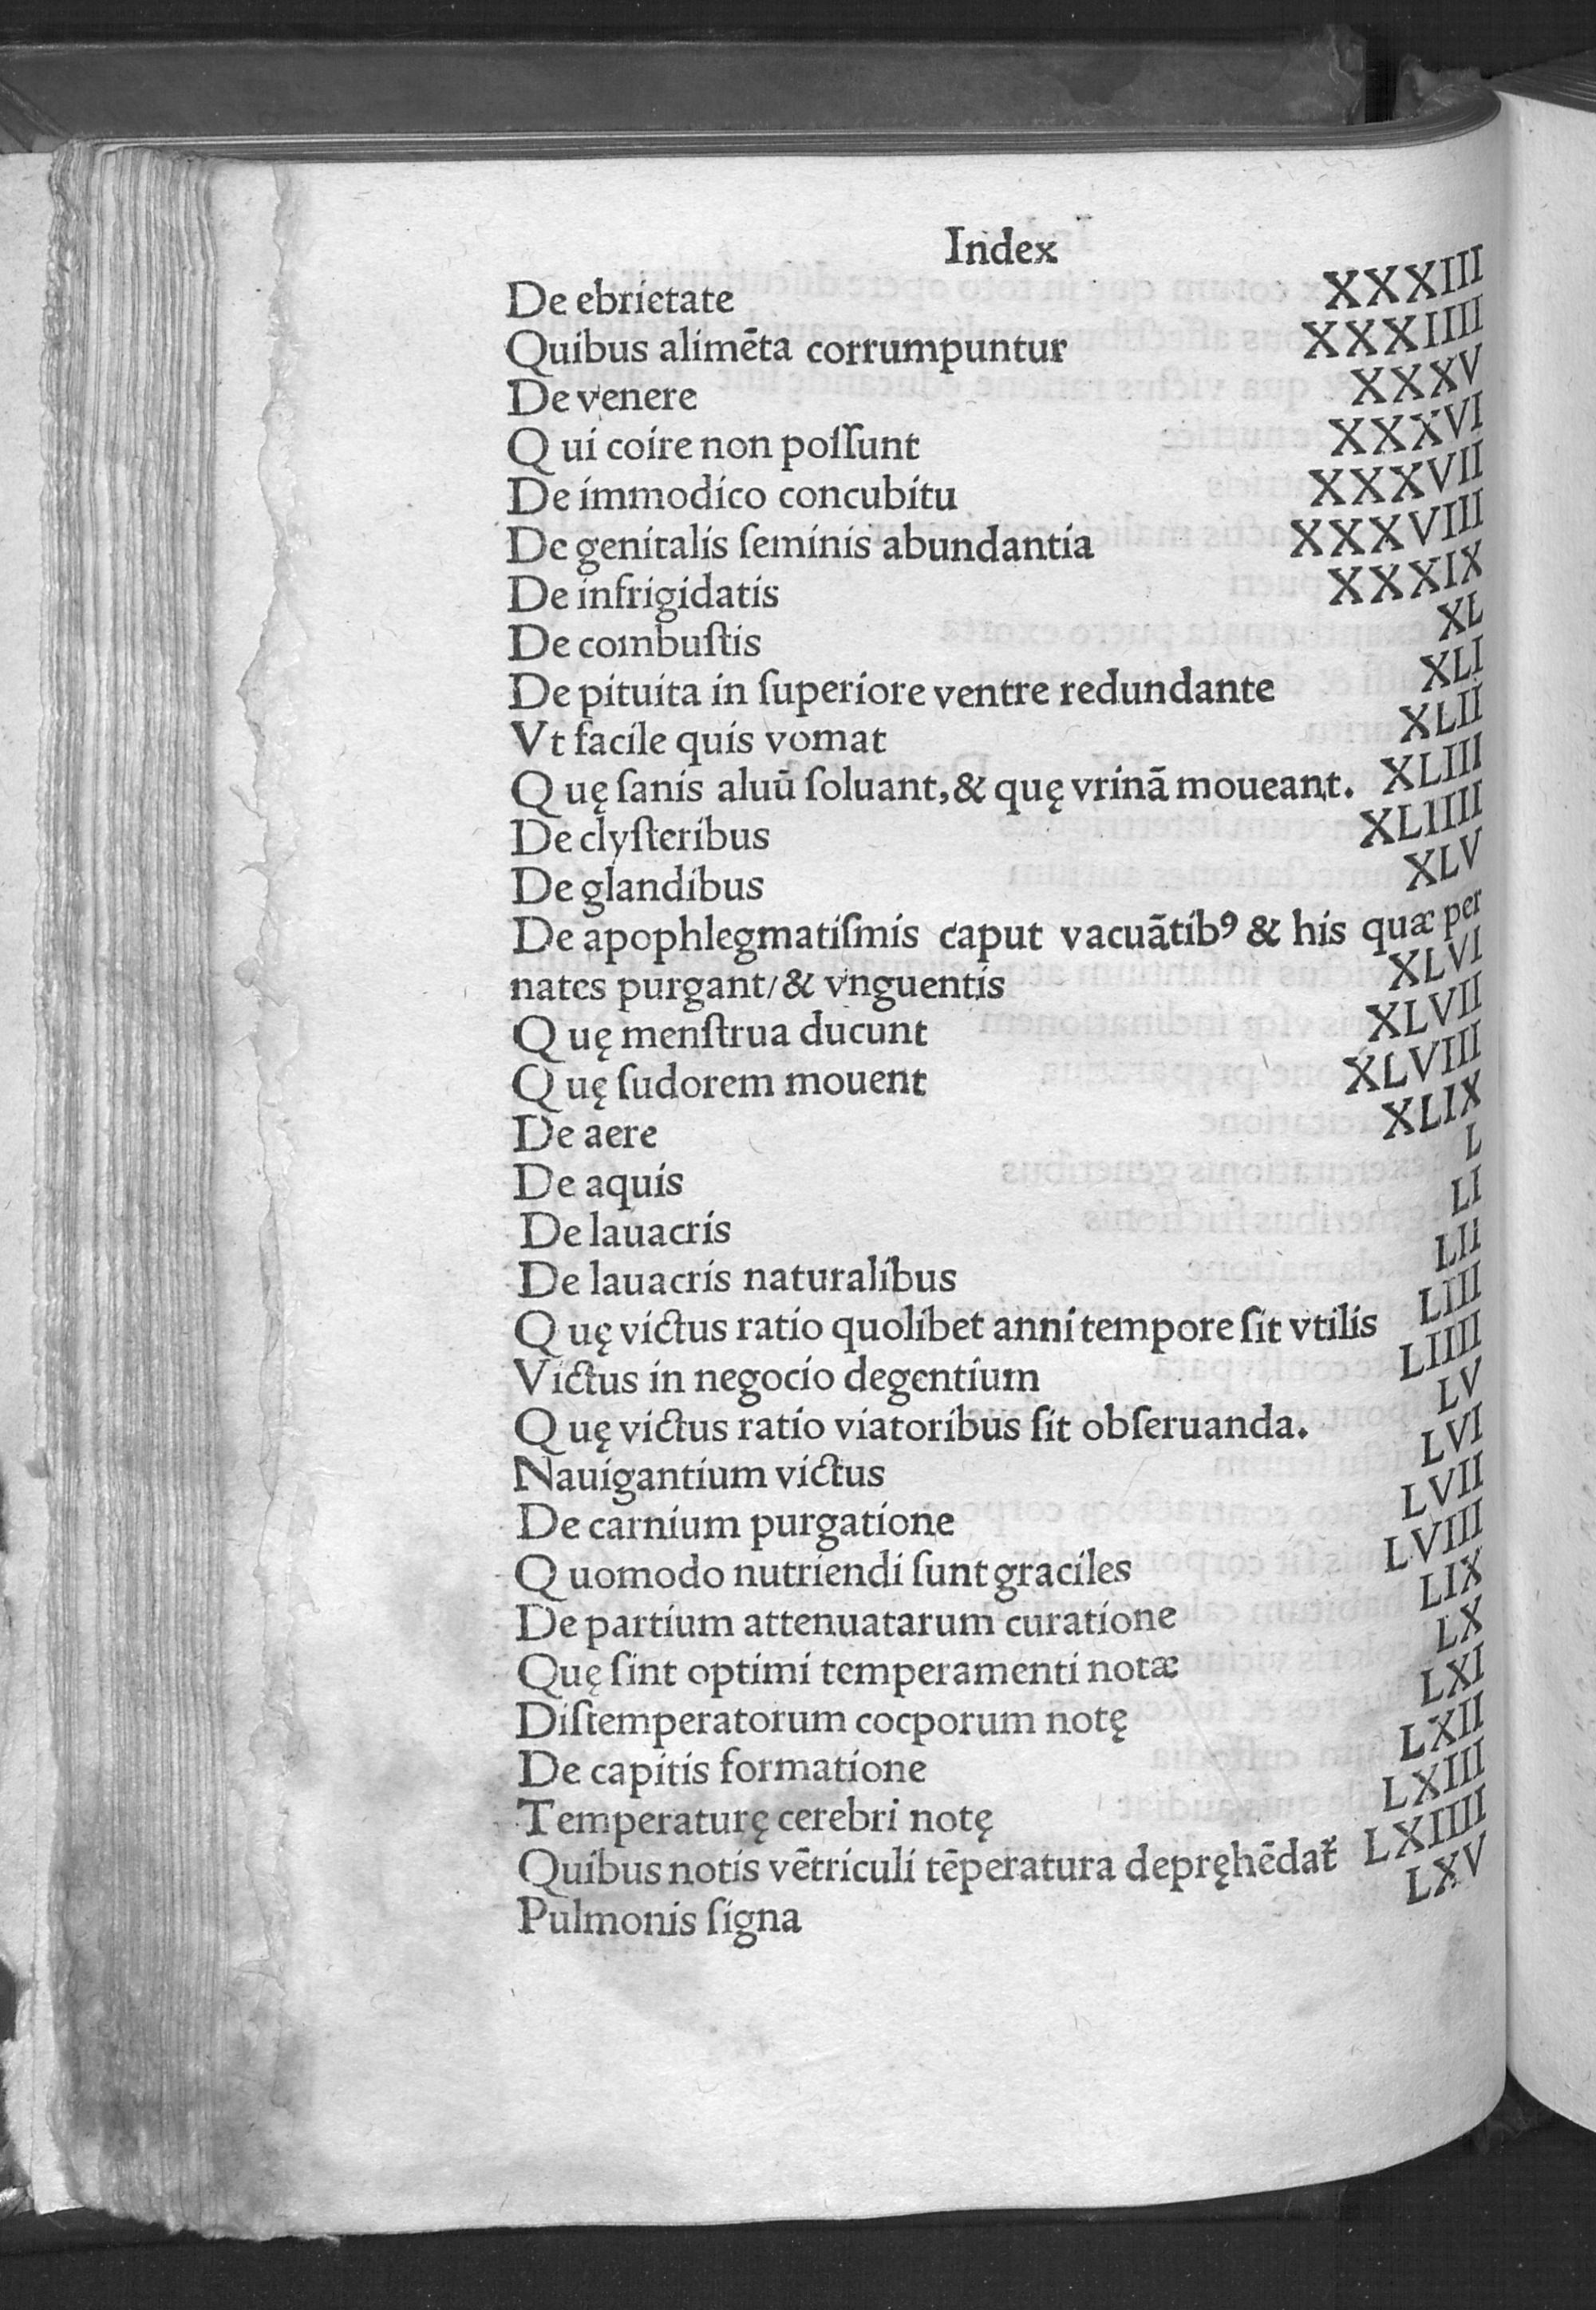 Index
De ebrietate XXXIII
Quibus alimēta corrumpuntur XXXIIII
De venere XXXV
Q ui coire non poſſunt XXXVI
De immodico concubitu XXXVII
De genitalis ſeminis abundantia XXXVIII
De infrigidatis XXXIX
De combuſtis XL
De pituita in ſuperiore ventre redundante XLI
Vt facile quis vomat XLII
Q uę ſanis aluū ſoluant, & quę vrinā moueant. XLIII
De clyſteribus XLIIII
De glandibus XLV
De apophlegmatiſmis caput vacuātibꝰ & his quæ per
nates purgant/& vnguentis XLVI
Q uę menſtrua ducunt XLVII
Q uę ſudorem mouent XLVIII
De aere XLIX
De aquis L
De lauacris LI
De lauacris naturalibus LII
Q uę victus ratio quolibet anni tempore ſit vtilis LIII
Victus in negocio degentium LIIII
Q uę victus ratio viatoribus ſit obſeruanda. LV
Nauigantium victus LVI
De carnium purgatione LVII
Q uomodo nutriendi ſunt graciles LVIII
De partium attenuatarum curatione LIX
Quę ſint optimi temperamenti notæ LX
Diſtemperatorum cocporum notę LXI
De capitis formatione LXII
Temperaturę cerebri notę LXIII
Quibus notis vētriculi tēperatura depręhēdat᷑ LXIIII
Pulmonis ſigna LXV